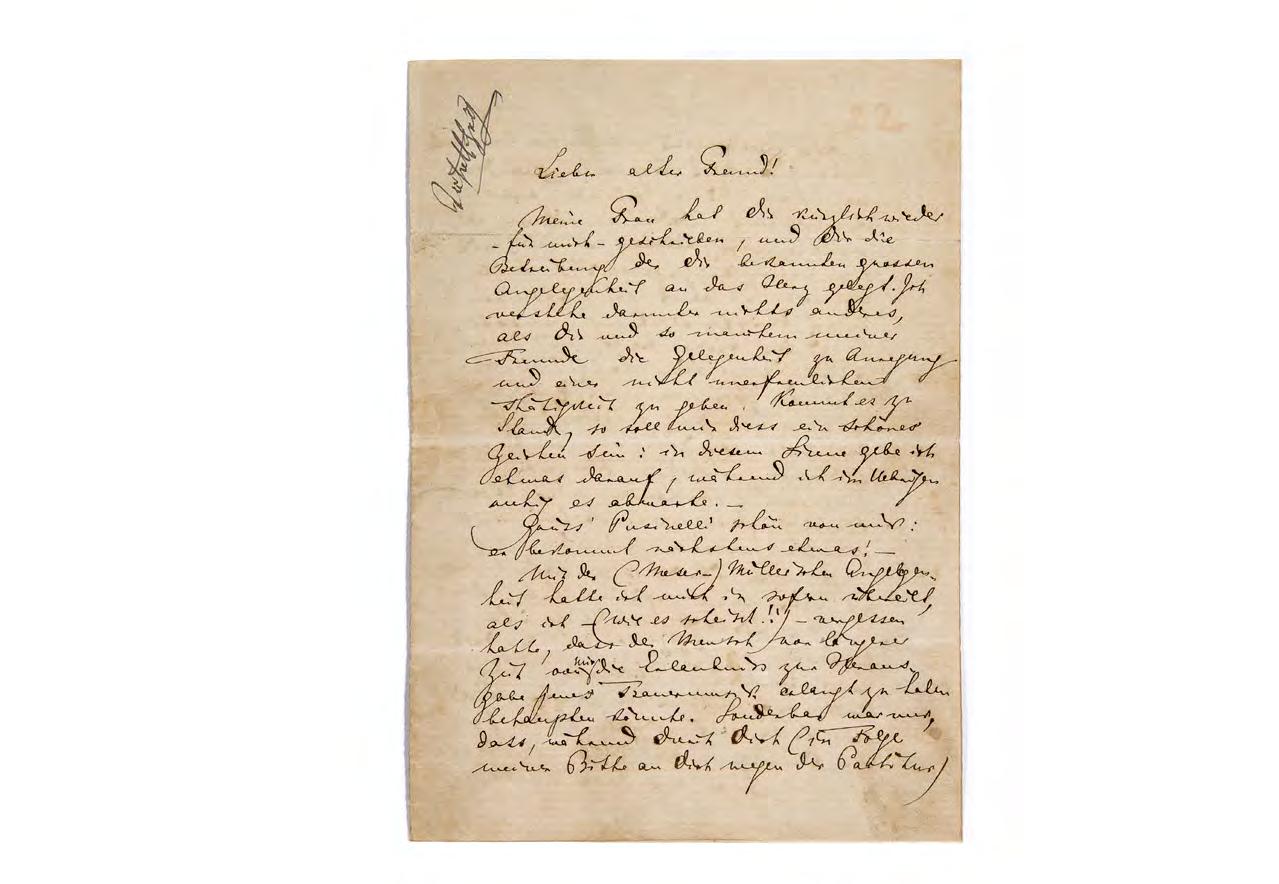 22
Lieber alter Freund!
Meine Frau hat Dir kürzlich wieder
– für mich – geschrieben, und Dir die
Betreibung der Dir bekannten grossen
Angelegenheit an das Herz gelegt. Ich
verstehe darunter nichts anderes,
als Dir und so manchem meiner
Freunde die Gelegenheit zu Anregung
und einer nicht unerfreulichen
Thätigkeit zu geben. Kommt es zu
Stand, so soll mir diess ein schönes
Zeichen sein: in diesem Sinne gebe ich
etwas darauf, während ich im Uebrigen
ruhig es abwarte. –
Grüss' Pusinelli schön von mir:
er bekommt nächstens etwas! –
Mit der (Meser-) Müllerschen Angelegen-
heit hatte ich mich in sofern übereilt,
als ich – (wie es scheint!!) – vergessen
hatte, dass der Mensch vor längerer
Zeit von mir die Erlaubniss zur Heraus-
gabe jenes Trauermusik erlangt zu haben
behaupten könnte. Sonderbar war nur,
dass, während durch Dich (in Folge
meiner Bitte an Dich wegen der Partitur)